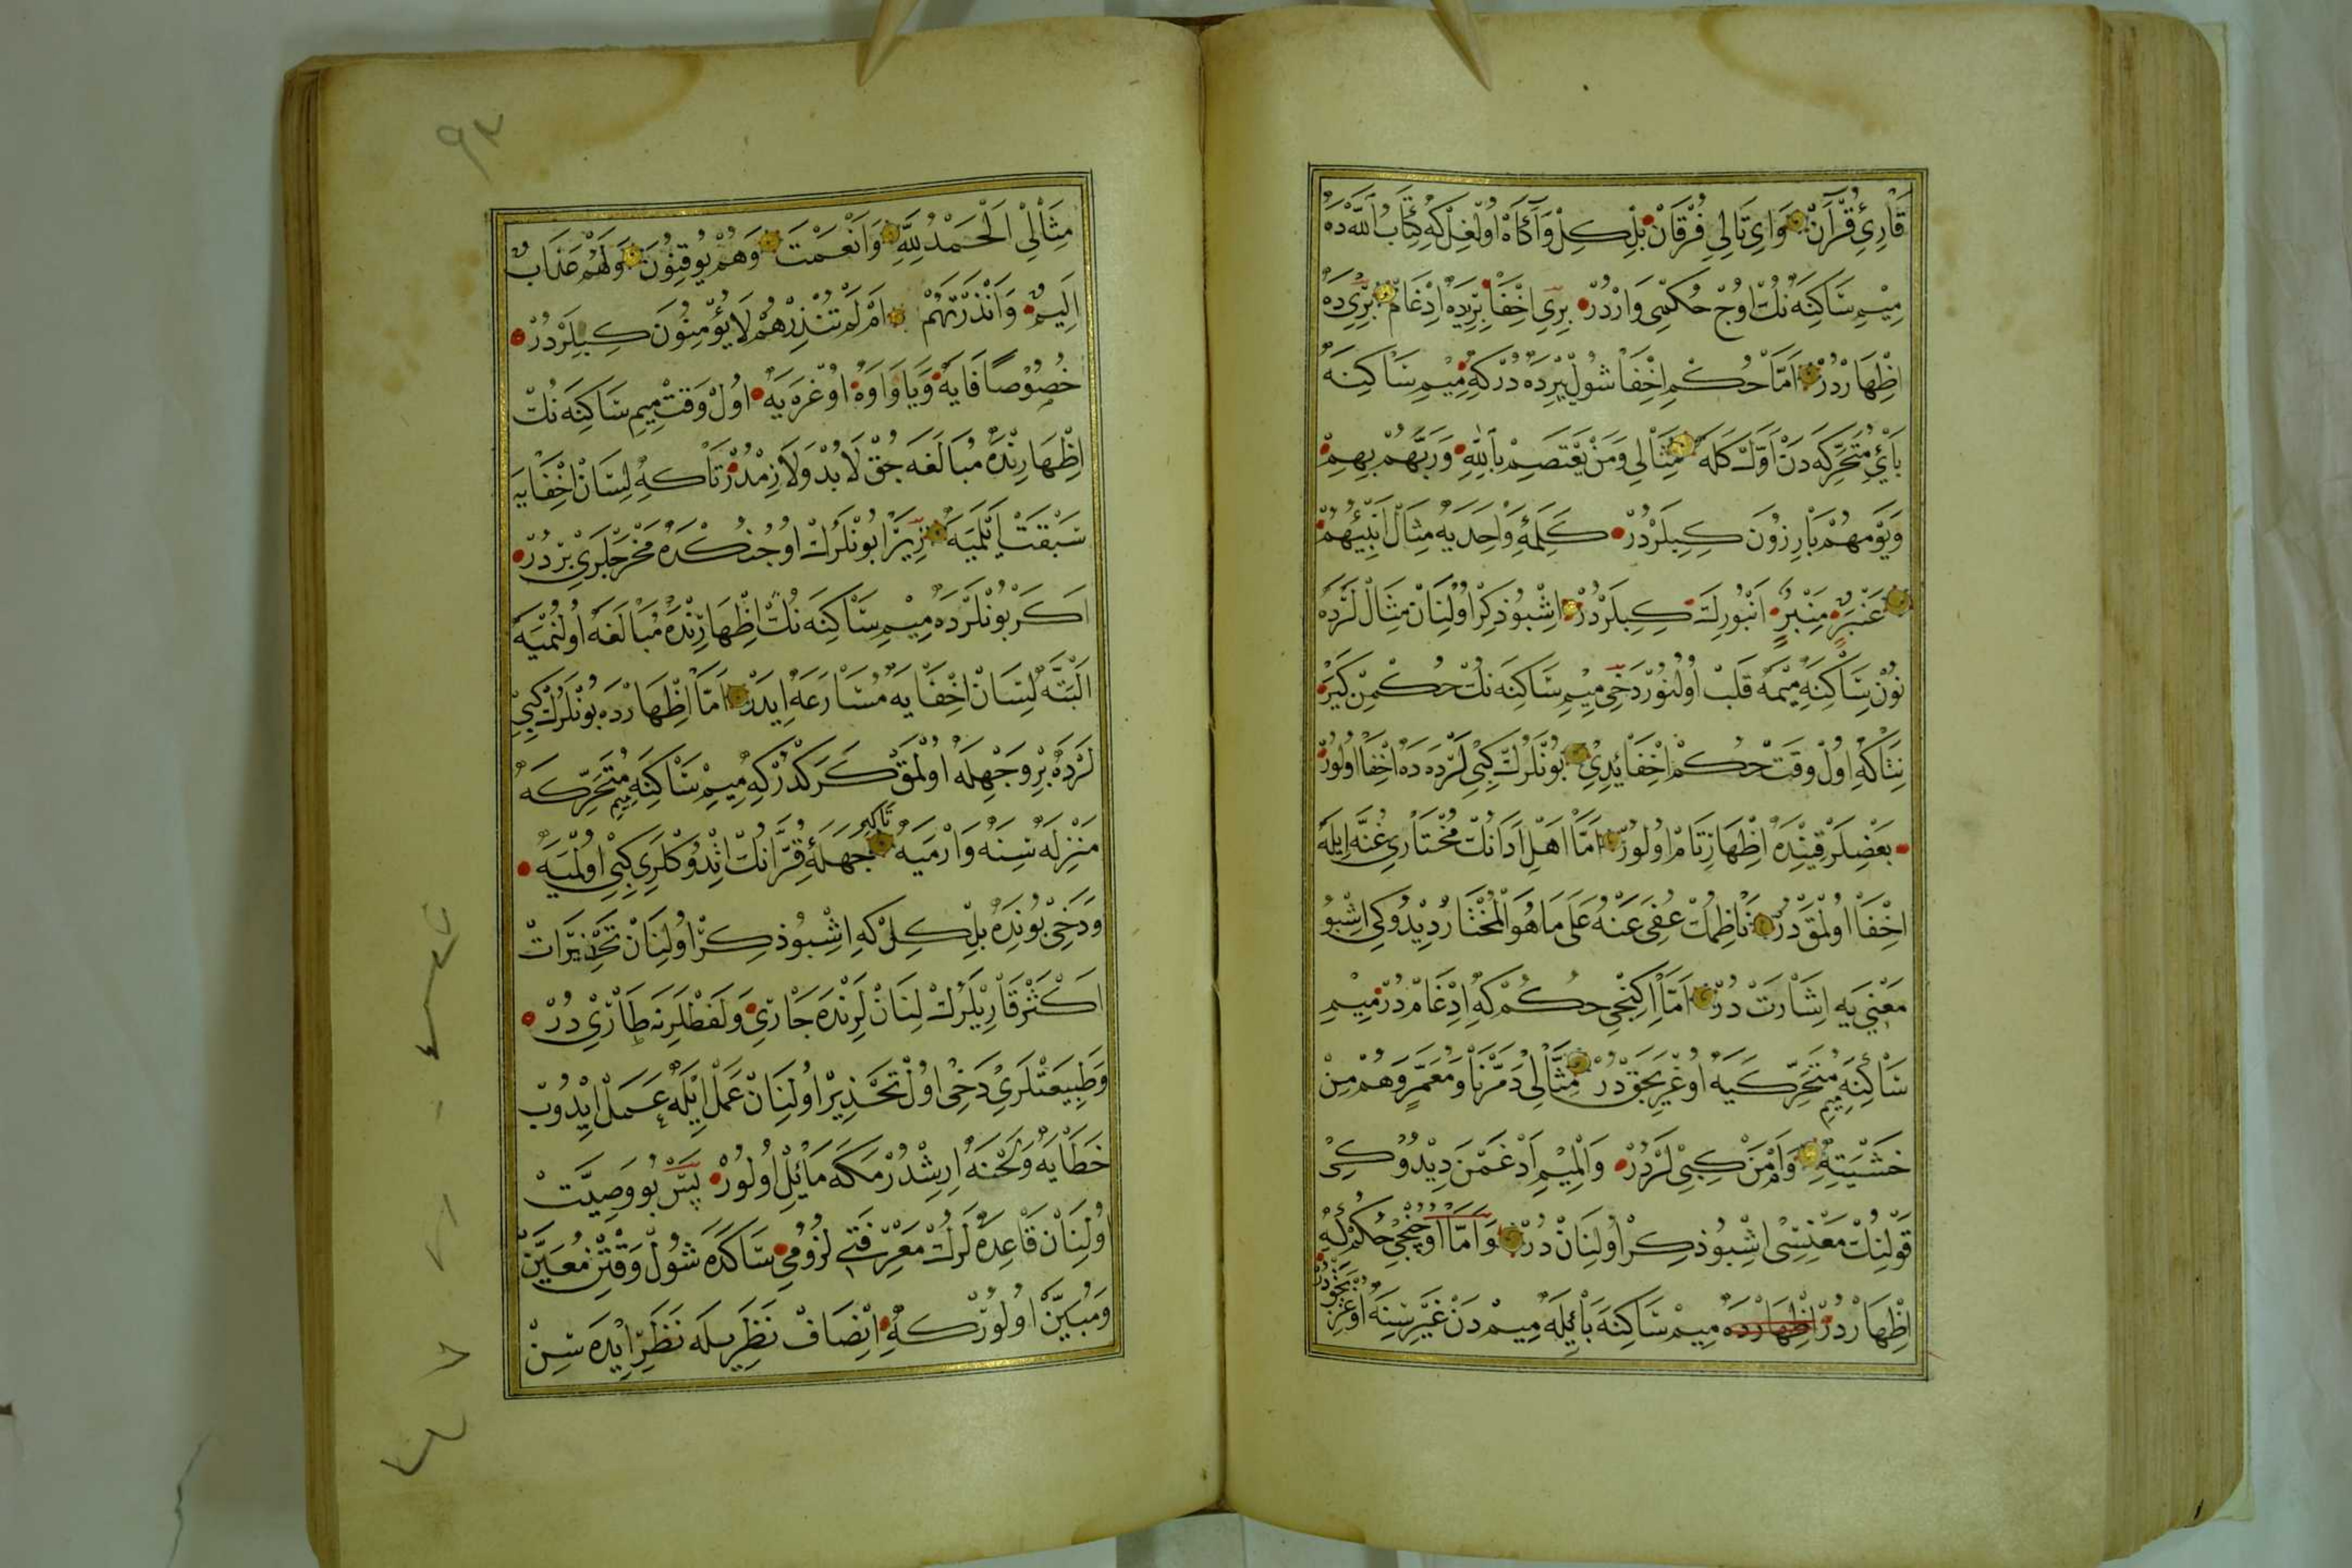 قَارِئِ قُرْآنْ وَاىِ تَالِي فُرْقَانْ بِلْ كِلْ وَآكَاهْ اُولْغِلْ كِه كِتَابُ اللّٰهْ دَه
مِيْمِ سَاكِنَه نُكْ اوُجْ حُكْمِى وَارْدُرْ بِرِي اِخْفَا بِرِيدَه اِدْغَامْ بِرِيدَه
اِظْهَارْدُرْ اَمَّا حُكْمِ اِخْفَا شُولْ يَرْدَه دُرْ كِه مِيْمِ سَاكِنَه
بَائِ مُتَحَرِّكَه دَنْ اَوَّلْ كَلَه مِثَالِي وَمَنْ يَعْتَصِمْ بِاللّٰهِ وَرَبَّهُمْ بِهِمْ
وَيَوْمَهُمْ بَارِزُونَ كِبِيلَرْدُرْ كَلِمَۀِ وَاحِدَيَه مِثَالْ اَنْبِئْهُمْ
عَنْبَرٍ مِنْبَرٍ اَنْبُورِكَ كِبِيلَرْدُرْ اِشْبُو ذِكِرْ اوُلِنَانْ مِثَالْ لَرْدَه
نُونِ سَاكِنَه مِيْمَه قَلْبْ اوُلُنُورْ دَخِى مِيْمِ سَاكِنَه نُكْ حُكْمِنْ كَيَرْ
نِتَاكِه اوُلْ وَقْتْ حُكْمْ اِخْفَا يِدِيْ بُونْلَرُكْ كِبِي لَرْدَه دَه اِخْفَا اوُلُورْ
بَعْضِلَرْ قَتِنْدَه اِظْهَارِ تَامْ اوُلُورْ اَمَّا اَهْلِ اَدَانُكْ مُخْتَارِي غُنَّه اِيلَه
اِخْفَا اوُلْمَقْدُرْ نَاظِمُكْ عُفِيَ عَنْهُ عَلَى مَا هُوَ الْمُخْتَارْ دِيْدُوكِى اِشْبُو
مَعْنِي يَه اِشَارَتْ دُرْ اَمَّا اِكِنْجِى حُكُمْ كِه اِدْغَامْ دُرْ مِيْمِ
سَاكِنَه مِيمِ مُتَحَرِّكَيَه اوُغْرَيَجَقْ دُرْ مِثَالِي دَمَّرْنَا وَمُعَمَّرٍ وَهُمْ مِنْ
خَشْيَتِهِ وَاَمْ مَنْ كِبِي لَرْدُرْ وَالْمِيْمِ اَدْغَمْنَ دِيْدُوكِى
قَوْلِنُكْ مَعْنِسِى اِشْبُو ذِكِرْ اوُلِنَانْ دُرْ وَاَمَّا اوُچُنْجِى حُكُمْ كِه
اِظْهَارْدُرْ اِظْهَارْدَه مِيمْ سَاكِنَه بَائِلَه مِيمْ دَنْ غَيْرِسِنَه اوُغْرَيَجَقْدُرْ
٩٣
مِثَالِيْ اَلْحَمْدُ لِلّٰهِ وَاَنْعَمْتَ وَهُمْ يُوقِنُونَ وَلَهُمْ عَذَابٌ
اَلِيمٌ وَاَنْذَرْتَهُمْ اَمْ لَمْ تُنْذِرْهُمْ لَا يُؤْمِنُونَ كِبِيلَرْدُرْ
خُصُوْصًا فَايَه وَيَا وَاوَه اوُغْرَيَه اوُلْ وَقْتْ مِيمِ سَاكِنَه نُكْ
اِظْهَارِنْدَه مُبَالَغَه جِقْ لَا بُدْ وَلَازِمْدُرْ تَاكِه لِسَانْ اِخْفَايَه
سَبْقَتْ اَيْلَمَيَه زِيرَا بُونْلَرُكْ اوُجُنُكْ دَه مَخْرَجْلَرِيْ بِرْدُرْ
اَكَرْ بُونْلَرْدَه مِيْمِ سَاكِنَه نُكْ اِظْهَارِنْدَه مُبَالَغَه اوُلُنْمَيَه
اَلْبَتَّه لِسَانْ اِخْفَايَه مُسَارَعَه اِيدَرْ اَمَّا اِظْهَارْدَه بُونْلَرُكْ كِبِي
لَرْدَه بِرْ وَجْهِلَه اوُلْمَقْ كَرَكْدُرْ كِه مِيْمِ سَاكِنَه مِيمِ مُتَحَرِّكَه
مَنْزِلَه سِنَه وَارْمَيَه تَاكِه جَهَلَۀِ قُرَّانُكْ اِتْدُوكْلَرِي كِبِي اوُلْمَيَه
وَدَخِى بُونْدَه بِلْ كِلْ كِه اِشْبُو ذِكِرْ اوُلِنَانْ تَحْذِيرَاتْ
اَكْثَرْ قَارِيْلَرُكْ لِسَانْ لَرِنْدَه جَارِيْ وَلَفْظْلَرِنَه طَارِيْ دُرْ
وَطَبِيعَتْلَرِيْ دَخِى اوُلْ تَحْذِيْرْ اوُلِنَانْ عَمَلْ اِيْلَه عَمَلْ اِيْدُوبْ
خَطَايَه وَلَحْنَه اِرِشْدُرْمَكَه مَائِلْ اوُلُورْ پَسْ بُو وَصِيَّتْ
اوُلِنَانْ قَاعِدَه لَرُكْ مَعْرِفَتِى لُزُومِي سَاكَه شُولْ وَقْتِنْ مُعَيَّنْ
وَمُبَيَّنْ اوُلُورْ كِه اِنْصَافْ نَظَرِيلَه نَظَرْ اِيدَه سِنْ